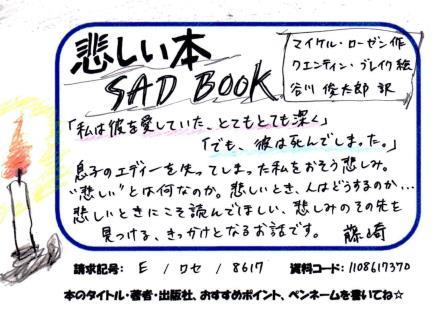 悲しい本
SAD BOOK
マイケル・ローゼン 作
クエンティン・ブレイク 絵
谷川 俊太郎 訳
「私は彼を愛していた、とてもとても深く」
「でも、彼は死んでしまった。」
息子のエディーを失ってしまった私をおそう悲しみ。
"悲しい"とは何なのか。悲しいとき、人はどうするのか…
悲しいときにこそ読んでほしい、悲しみのその先を
見つける、きっかけとなるお話です。 藤崎
請求記号: E / ロセ / 8617 資料コード: 1108617370
本のタイトル・著者・出版社、おすすめポイント、ペンネームを書いてね☆